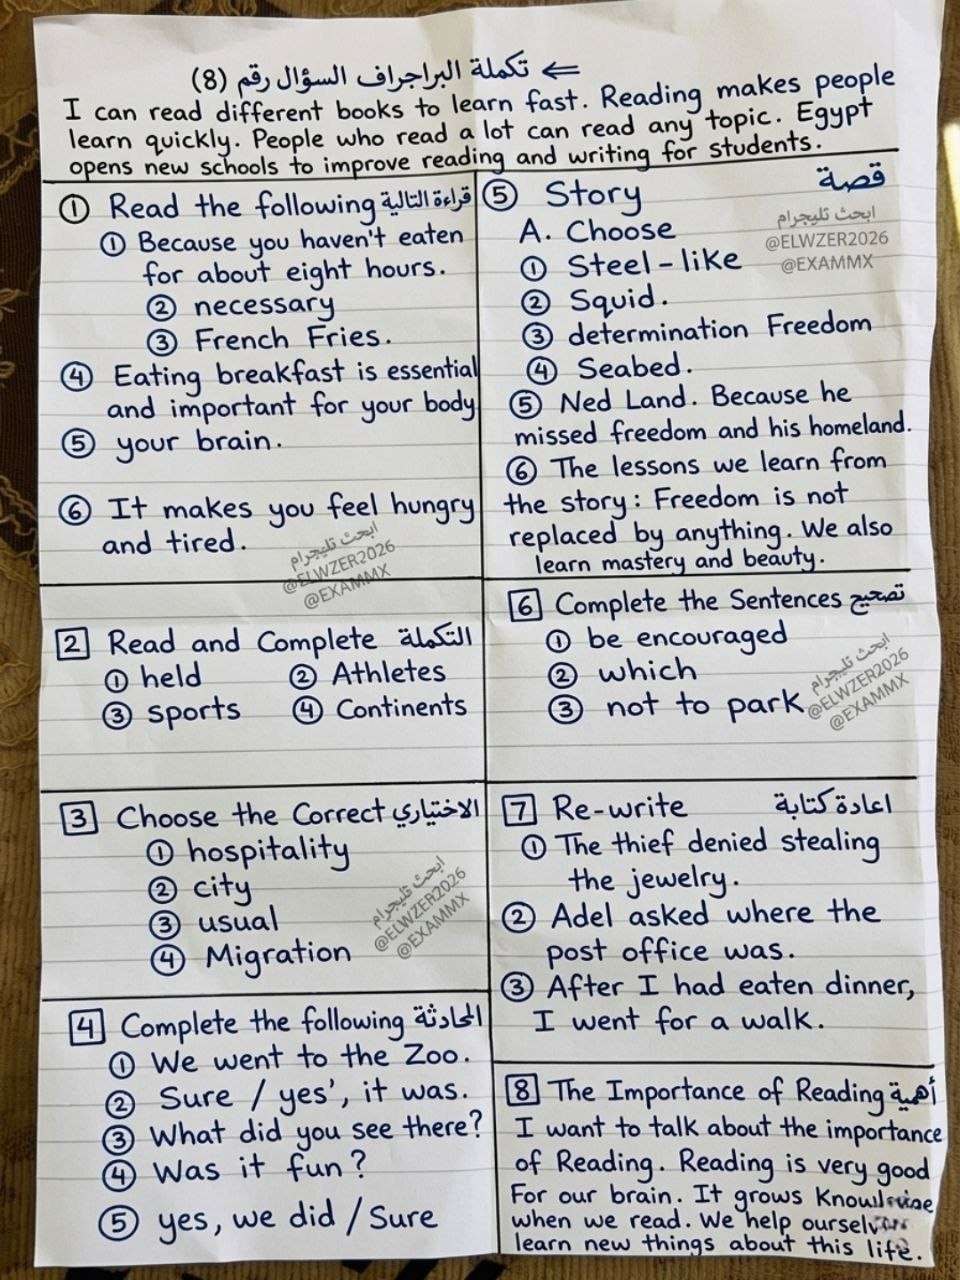 ⇐ تكملة البراجراف السؤال رقم (8)
I can read different books to learn fast. Reading makes people
learn quickly. People who read a lot can read any topic. Egypt
opens new schools to improve reading and writing for students.
① Read the following قراءة التالية
① Because you haven't eaten
for about eight hours.
② necessary
③ French Fries.
④ Eating breakfast is essential
and important for your body
⑤ your brain.
⑥ It makes you feel hungry
and tired.
ابحث تليجرام
@ELWZER2026
@EXAMMX
2 Read and Complete التكملة
① held ② Athletes
③ sports ④ Continents
3 Choose the Correct الاختياري
① hospitality
② city
③ usual
④ Migration
ابحث تليجرام
@ELWZER2026
@EXAMMX
4 Complete the following المحادثة
① We went to the Zoo.
② Sure / yes', it was.
③ What did you see there?
④ Was it fun?
⑤ yes, we did / Sure
⑤ Story قصة
ابحث تليجرام
@ELWZER2026
@EXAMMX
A. Choose
① Steel-like
② Squid.
③ determination Freedom
④ Seabed.
⑤ Ned Land. Because he
missed freedom and his homeland.
⑥ The lessons we learn from
the story: Freedom is not
replaced by anything. We also
learn mastery and beauty.
6 Complete the Sentences تصحيح
① be encouraged
② which
③ not to park
ابحث تليجرام
@ELWZER2026
@EXAMMX
7 Re-write اعادة كتابة
① The thief denied stealing
the jewelry.
② Adel asked where the
post office was.
③ After I had eaten dinner,
I went for a walk.
8 The Importance of Reading أهمية
I want to talk about the importance
of Reading. Reading is very good
For our brain. It grows
when we read. We help
learn new things about this life.